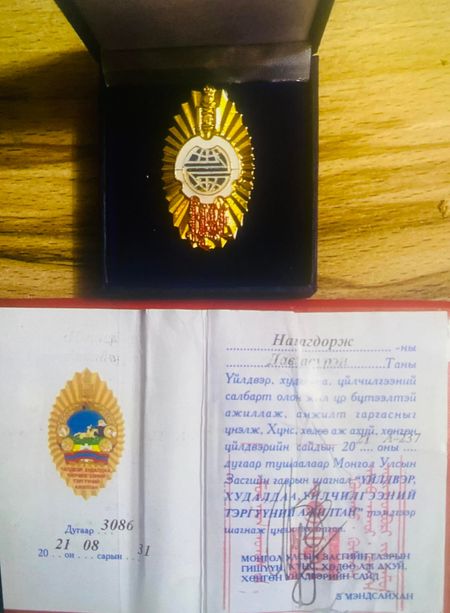 ҮЙЛДВЭР ХУДАЛДАА
ҮЙЛЧИЛГЭЭНИЙ
ТЭРГҮҮНИЙ
АЖИЛТАН
Дугаар 3086
2021 он 08 сарын 31
Нацагдорж -ны
Таны
Үйлдвэр, худалдаа, үйлчилгээний
салбарт олон жил үр бүтээлтэй
ажиллаж, амжилт гаргасныг
үнэлж, Хүнс, хөдөө аж ахуй, хөнгөн
үйлдвэрийн сайдын 2021 оны А-237
дугаар тушаалаар Монгол Улсын
Засгийн газрын шагнал "ҮЙЛДВЭР,
ХУДАЛДАА, ҮЙЛЧИЛГЭЭНИЙ
ТЭРГҮҮНИЙ АЖИЛТАН" тэмдгээр
шагнаж үнэмлэх олгов.
МОНГОЛ УЛСЫН ЗАСГИЙН ГАЗРЫН
ГИШҮҮН, ХҮНС, ХӨДӨӨ АЖ АХУЙ,
ХӨНГӨН ҮЙЛДВЭРИЙН САЙД
З.МЭНДСАЙХАН